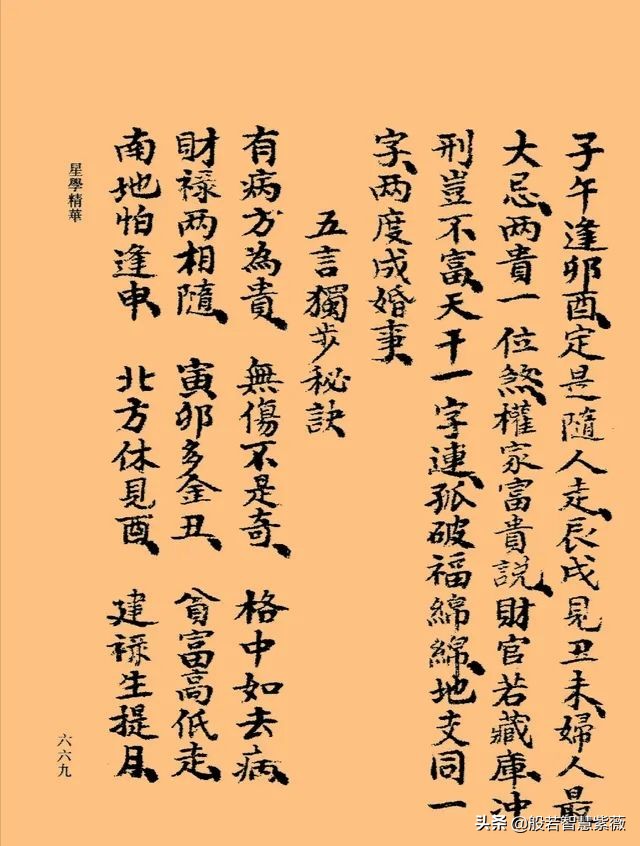 子午逢卯酉定是隨人走辰戌見丑未婦人最
大忌两貴一位煞權家富貴說財官若藏庫冲
刑豈不富天干一字連孤破福綿綿地支同一
字两度成婚事
五言獨步秘訣
有病方為貴 無傷不是奇 格中如去病
財祿两相隨 寅卯多金丑 貧富高低走
南地怕逢申 北方休見酉 建祿生提月
星學精華
六六九
头条 @般若智慧紫薇